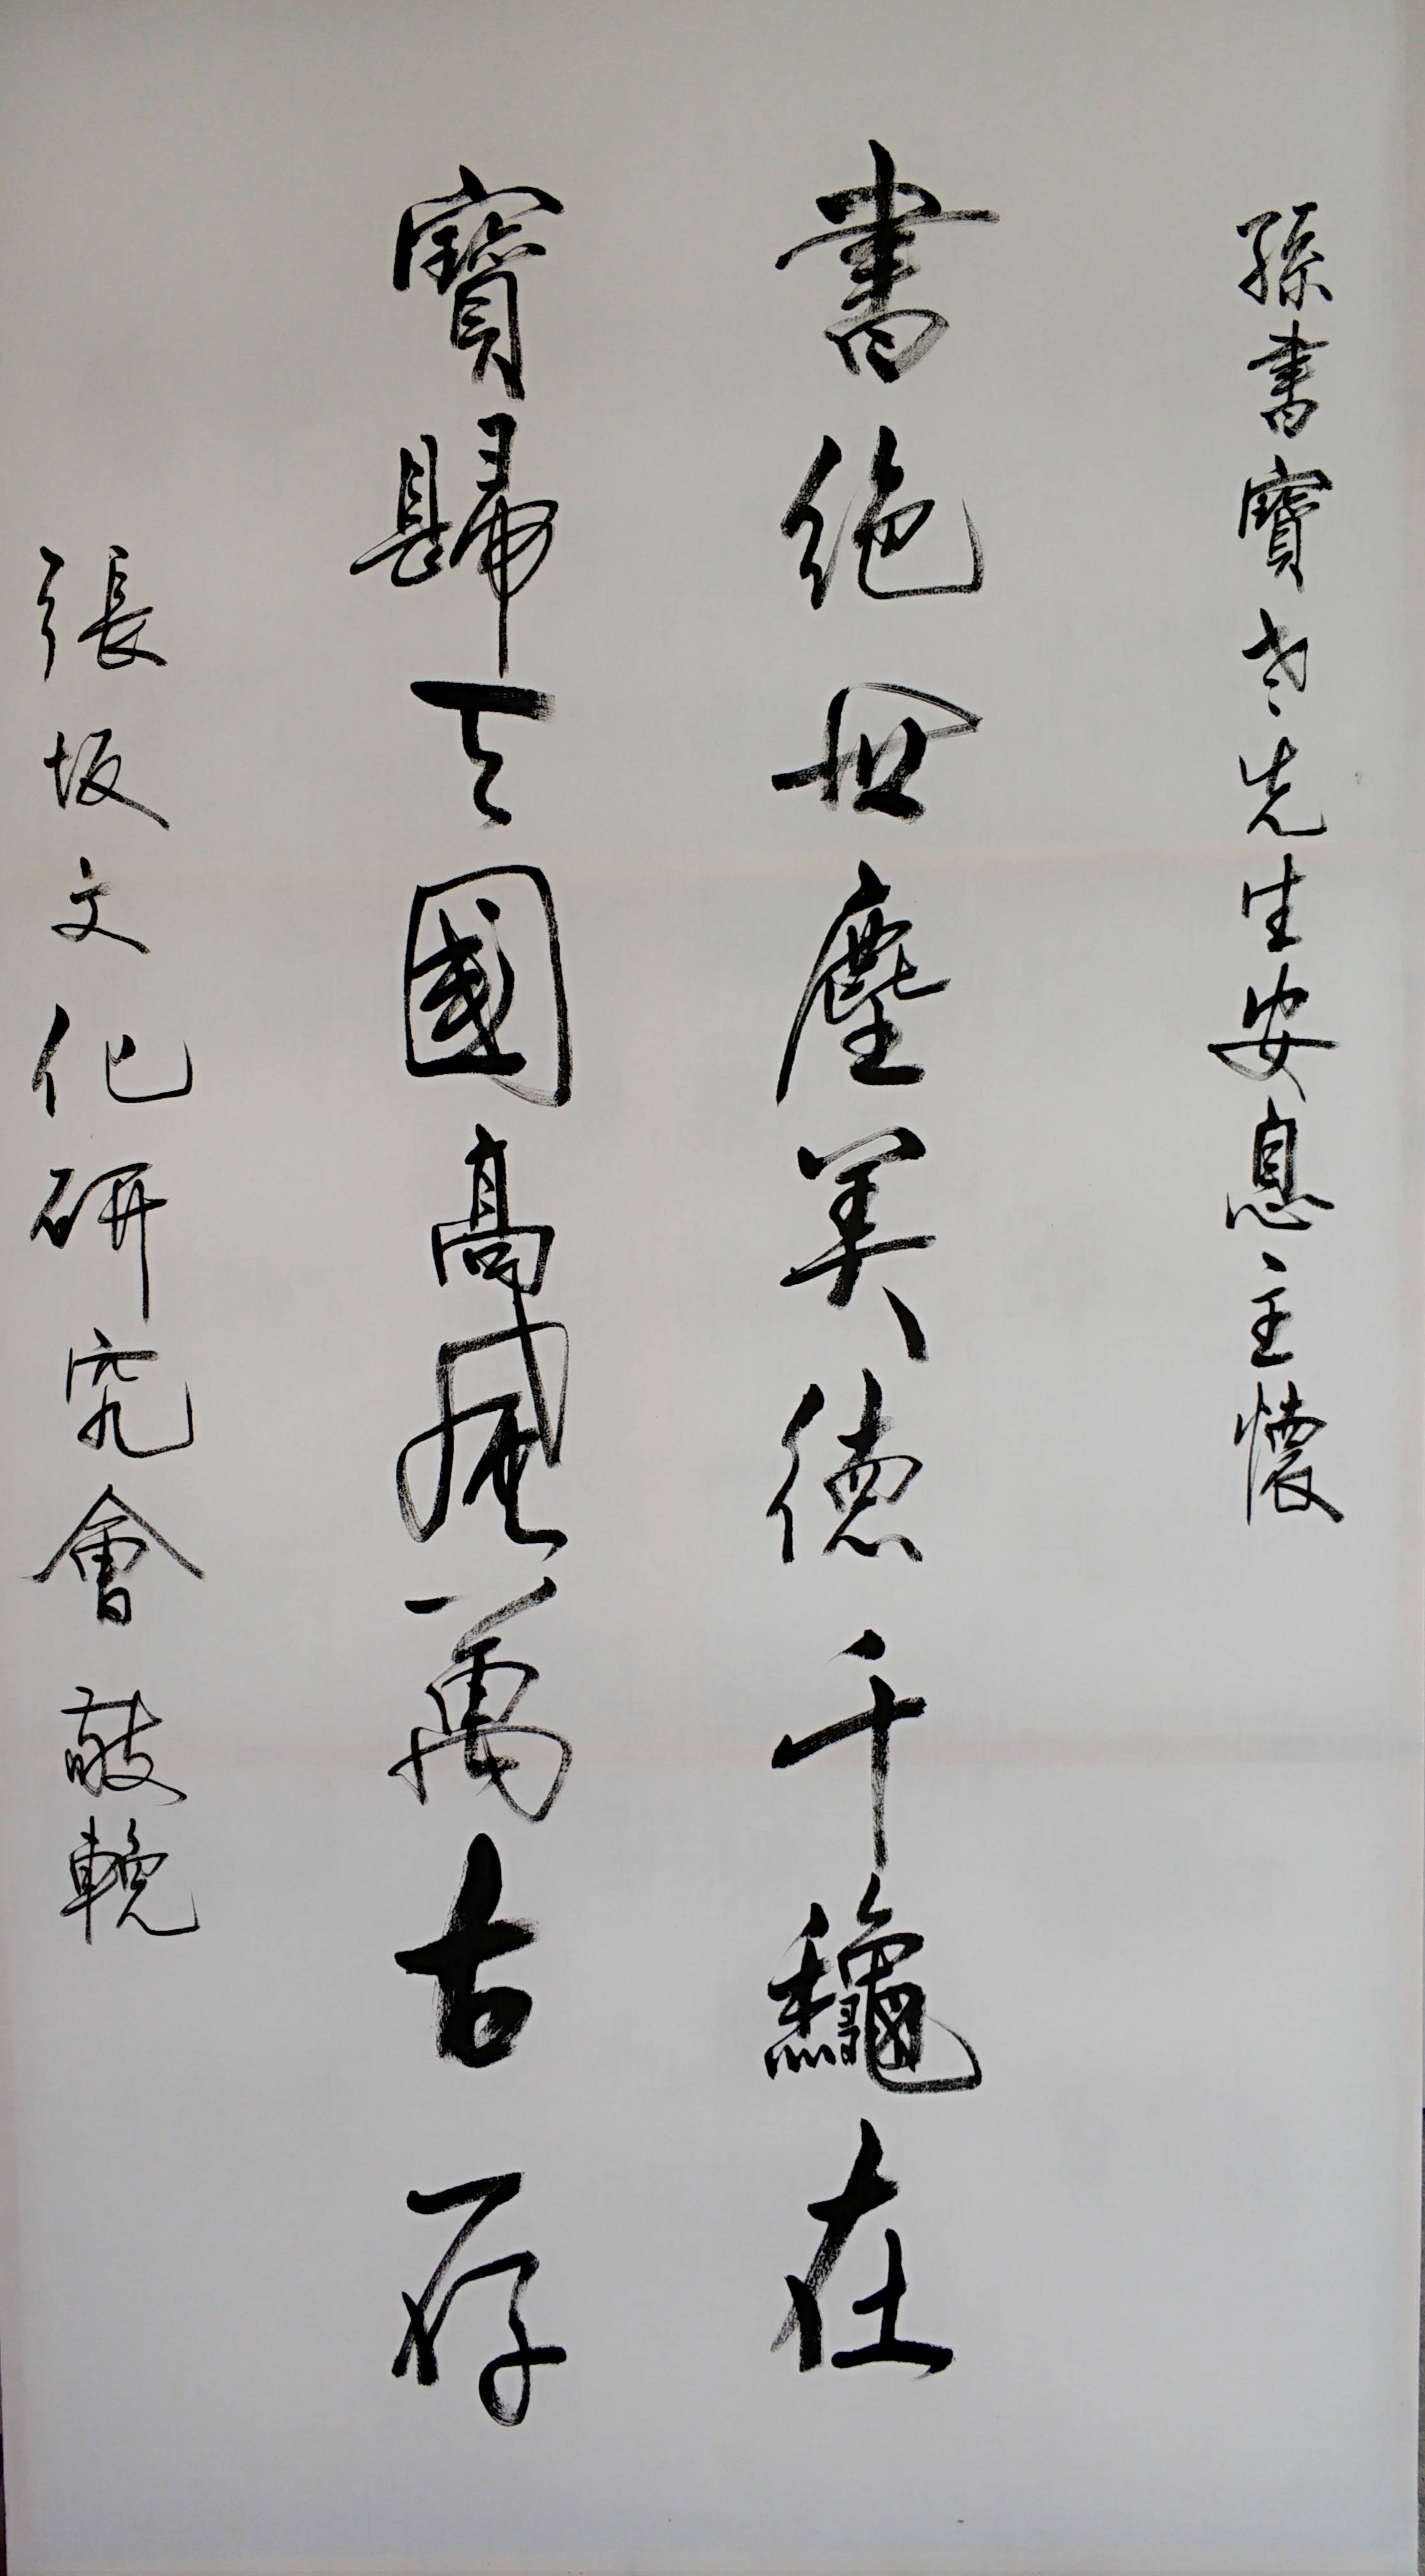 孫書寶老先生安息主懷
書絶世塵美德千龝在
寶歸天國高風萬古存
張坂文化研究會 敬輓